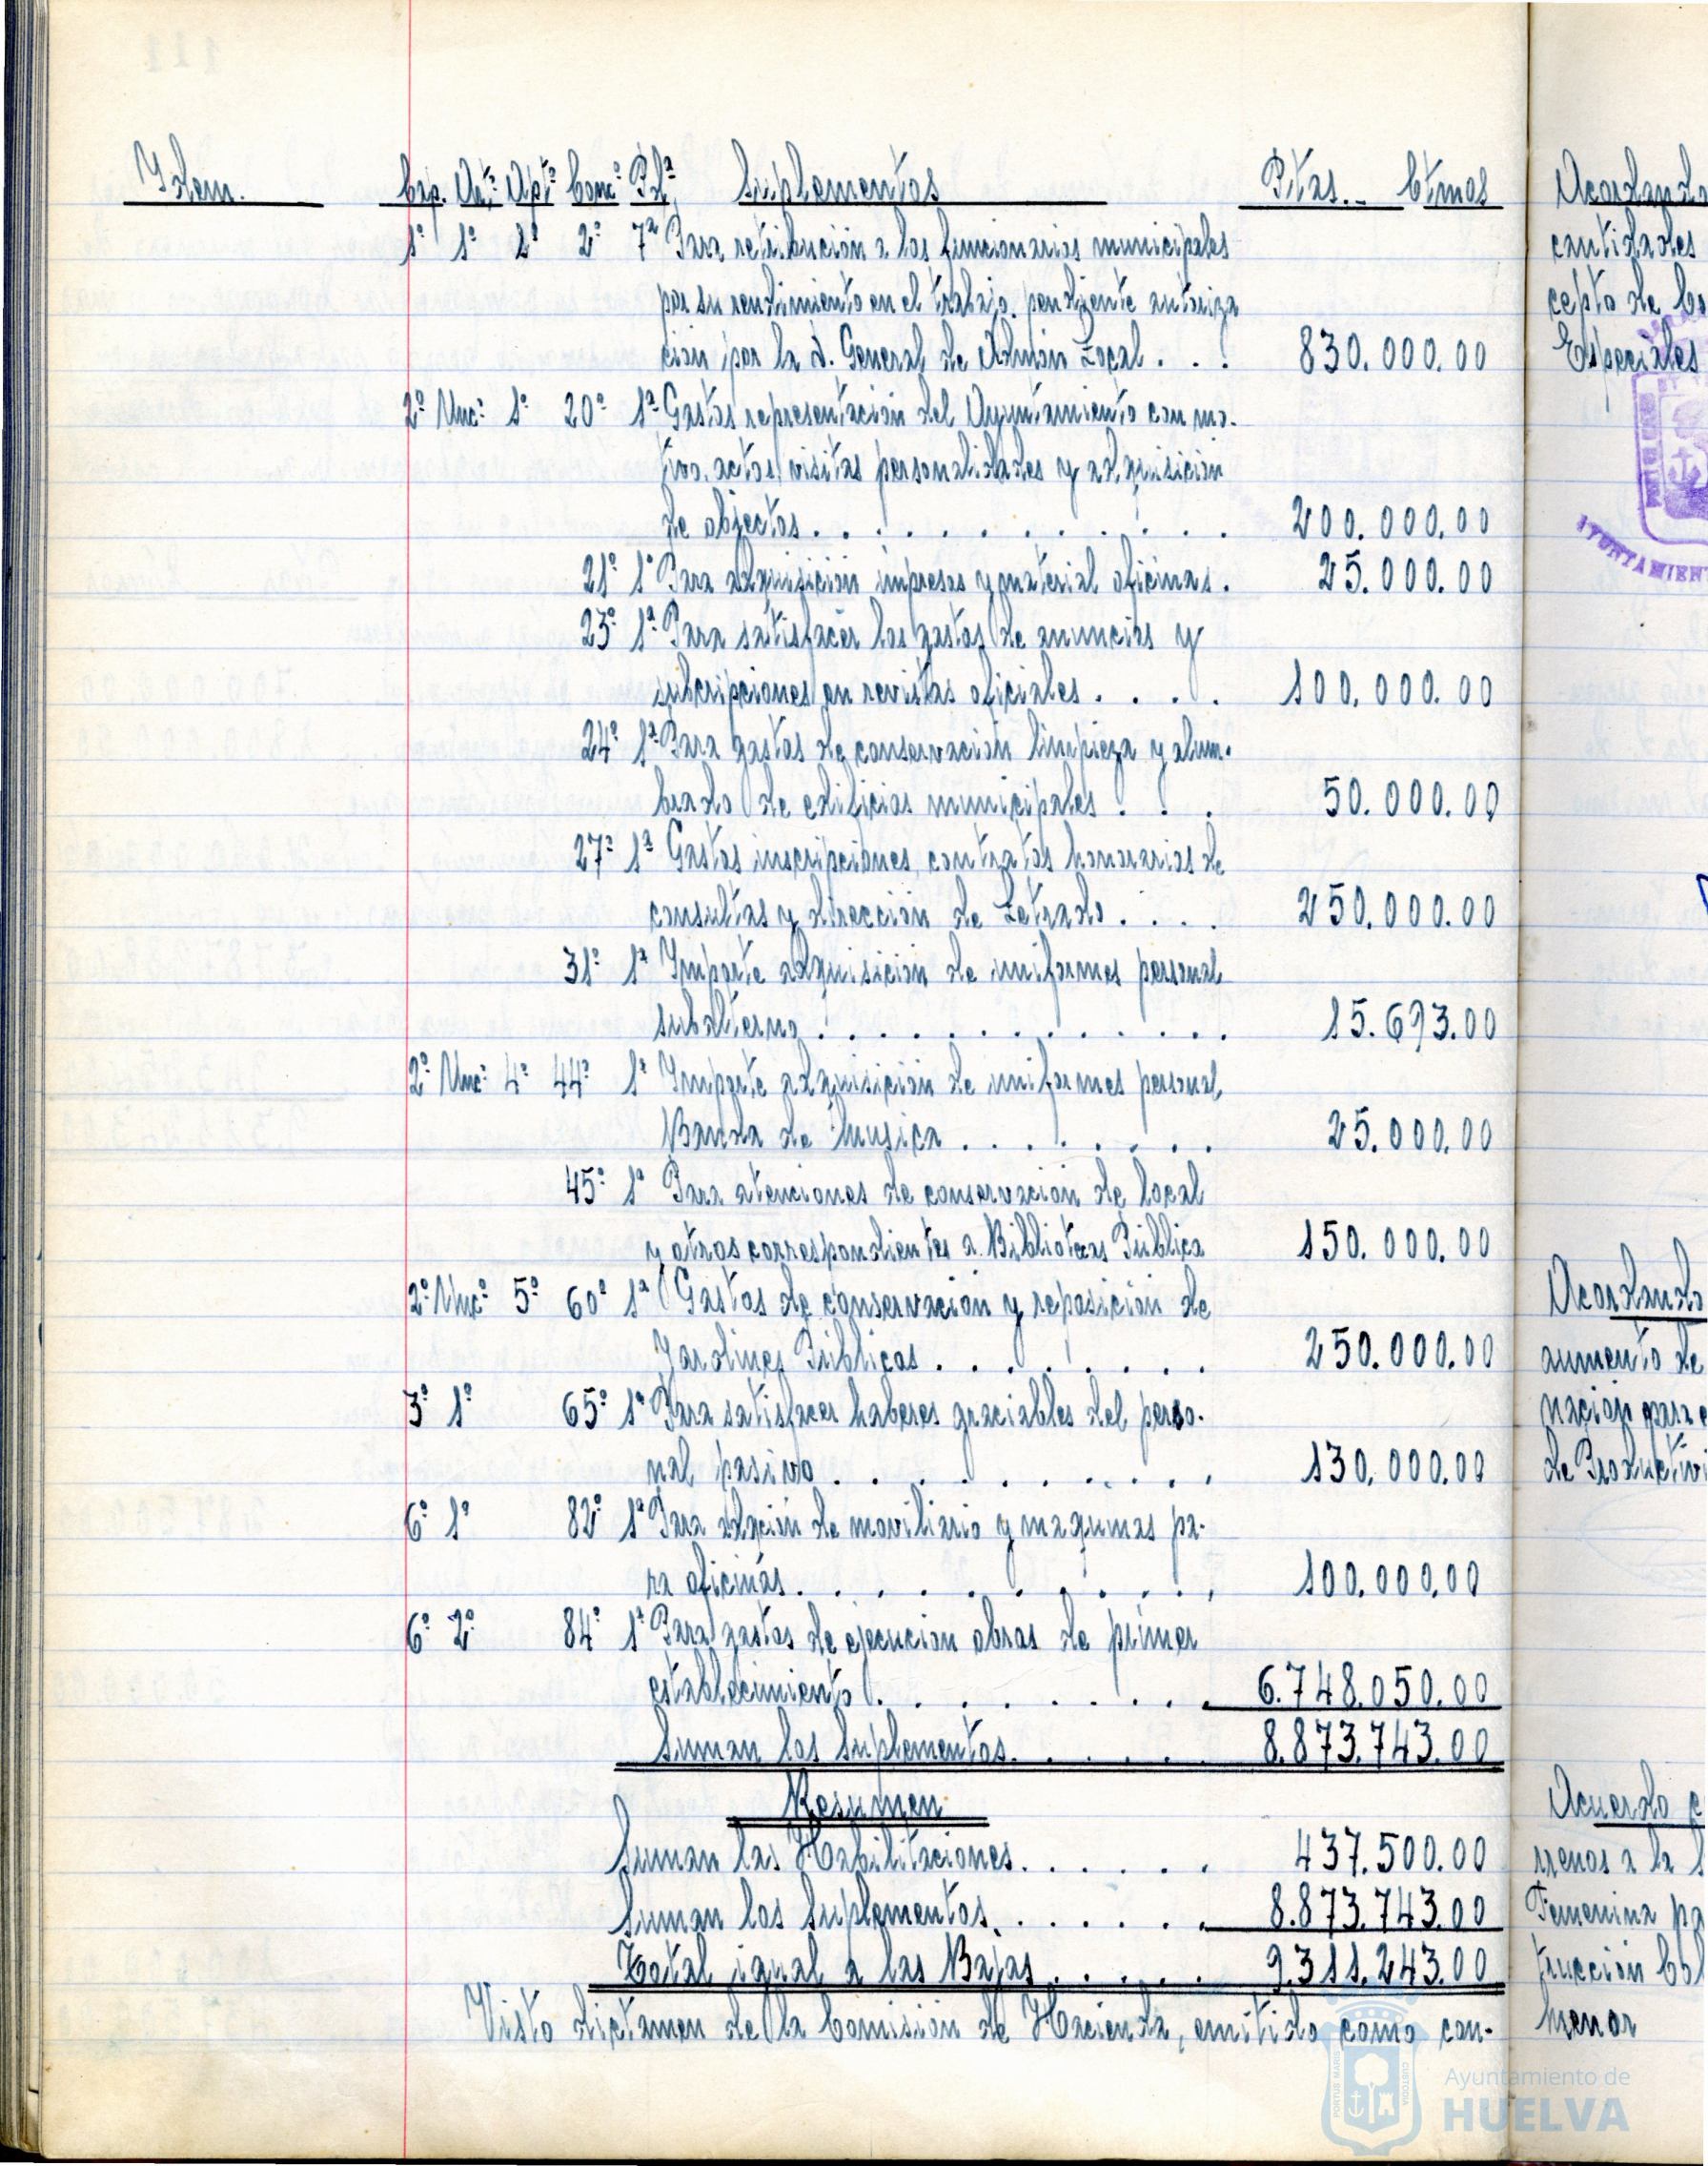 Idem. Cap. Art. Apt. Conc. Pda. Suplementos Ptas. Ctmos
1º 1º 2º 7ª Para retribución a los funcionarios municipales
por su rendimiento en el trabajo, pendiente autoriza
ción por la d. General de Admón Local . . . 830.000.00
2º Unc: 1º 20º 1ª Gastos representación del Ayuntamiento con mo-
tivo, actos, visitas personalidades y adquisición
de objectos . . . . . . . . . . . . 200.000.00
21º 1ª Para adquisición impresos y material oficinas . 25.000.00
23º 1ª Para satisfacer los gastos de anuncios y
subcripciones en revistas oficiales . . . . 100.000.00
24º 1ª Para gastos de conservación limpieza y alum-
brado de edificios municipales . . . 50.000.00
27º 1ª Gastos inscripciones, contratos honorarios de
consultas y dirección de Letrado . . . . 250.000.00
31º 1ª Importe adquisición de uniformes personal
subalterno . . . . . . . . . . . . 15.693.00
2º Unc: 4º 44º 1ª Importe adquisición de uniformes personal
Banda de Música . . . . . . . . 25.000.00
45º 1ª Para atenciones de conservación de local
y otros correspondientes a Bibliotecas Pública 150.000.00
2º Unc: 5º 60º 1ª Gastos de conservación y reposición de
Jardines Públicos . . . . . . . . 250.000.00
3º 1º 65º 1ª Para satisfacer haberes graciables del perso-
nal pasivo . . . . . . . . . . . 130.000.00
6º 1º 82º 1ª Para adqción de moviliario y maquinas pa-
ra oficinas . . . . . . . . . . . 100.000.00
6º 2º 84º 1ª Para gastos de ejecución obras de primer
establecimiento . . . . . . . . . 6.748.050.00
Suman los Suplementos . . . . . 8.873.743.00
Resumen
Suman las Habilitaciones . . . . . 437.500.00
Suman los Suplementos . . . . . . 8.873.743.00
Total igual a las Bajas . . . . . 9.311.243.00
Visto dictamen de la Comisión de Hacienda, emitido como con-
Acordando
cantidades
cepto de
Especiales
AYUNTAMIEN
Acordando
aumento de
nación para
de Productivi
Acuerdo
rrenos a la
Femenina pa
trucción
menor
Ayuntamiento de
HUELVA